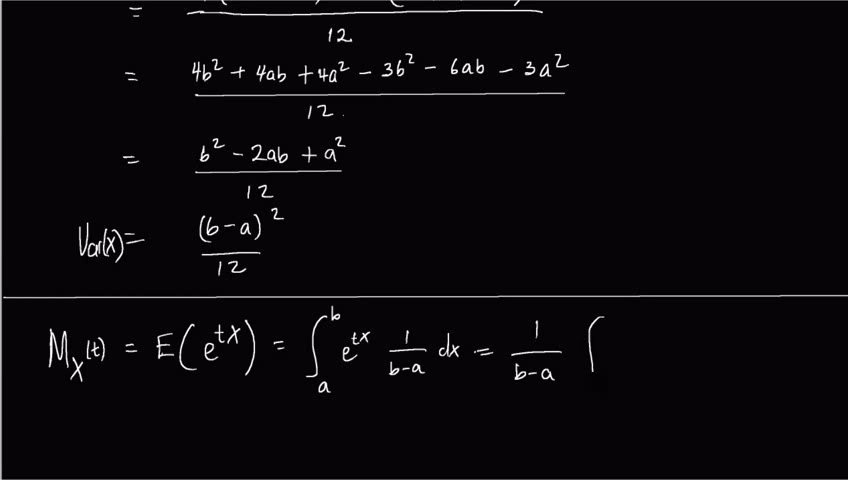 =
12
= 4b² + 4ab + 4a² − 3b² − 6ab − 3a²
12
= b² − 2ab + a²
12
Var(x) = (b−a)²
12
M_X(t) = E(e^{tX}) = ∫_a^b e^{tx} 1/(b−a) dx = 1/(b−a) ∫